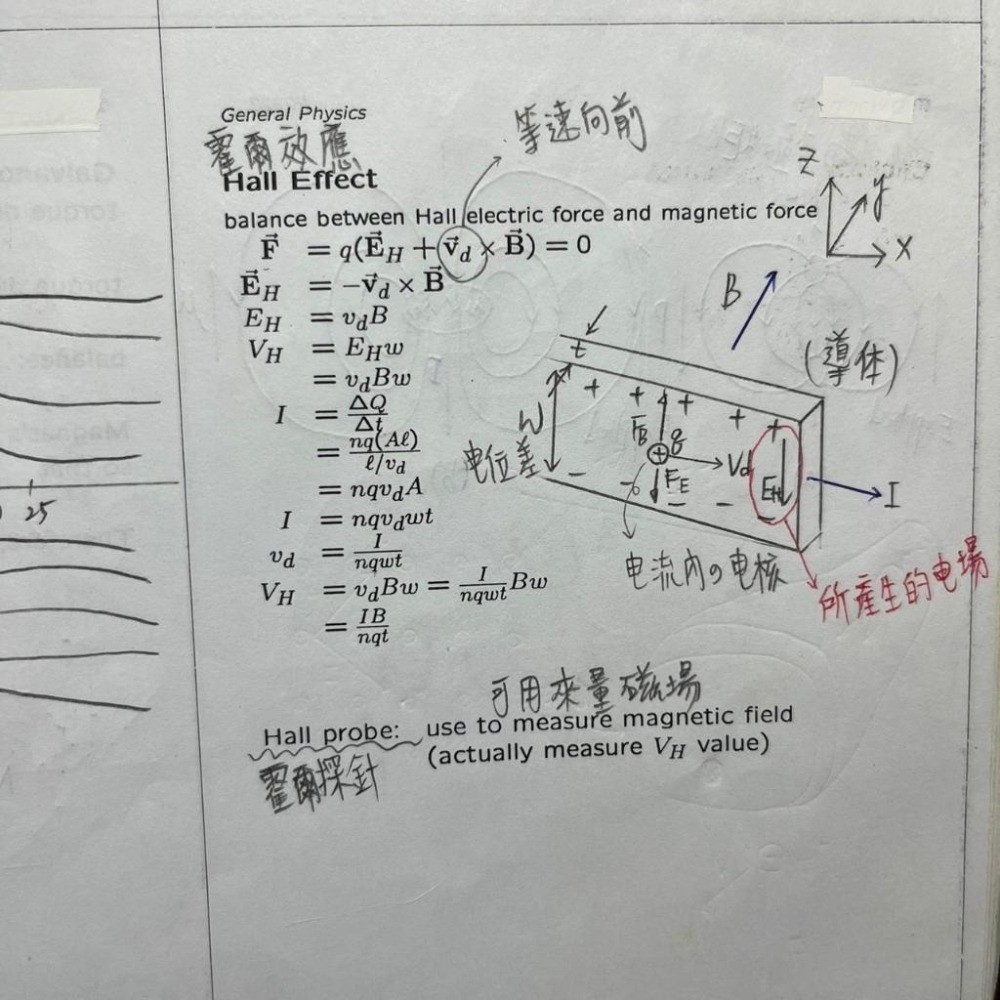 General Physics
等速向前
霍爾效應
Hall Effect
balance between Hall electric force and magnetic force
F⃗ = q(E⃗_H + v⃗_d × B⃗) = 0
E⃗_H = −v⃗_d × B⃗
E_H = v_d B
V_H = E_H w
= v_d Bw
I = ΔQ/Δt
= nq(Aℓ)/(ℓ/v_d)
= nqv_d A
I = nqv_d wt
v_d = I/(nqwt)
V_H = v_d Bw = I/(nqwt) Bw
= IB/(nqt)
Z
y
X
B
(導体)
t
+ + + + +
W
电位差
F_B
q
⊕
Vd
F_E
E_H
− − − − −
I
电流内の电核
所產生的电場
可用來量磁場
Hall probe: use to measure magnetic field
(actually measure V_H value)
霍爾探針
25